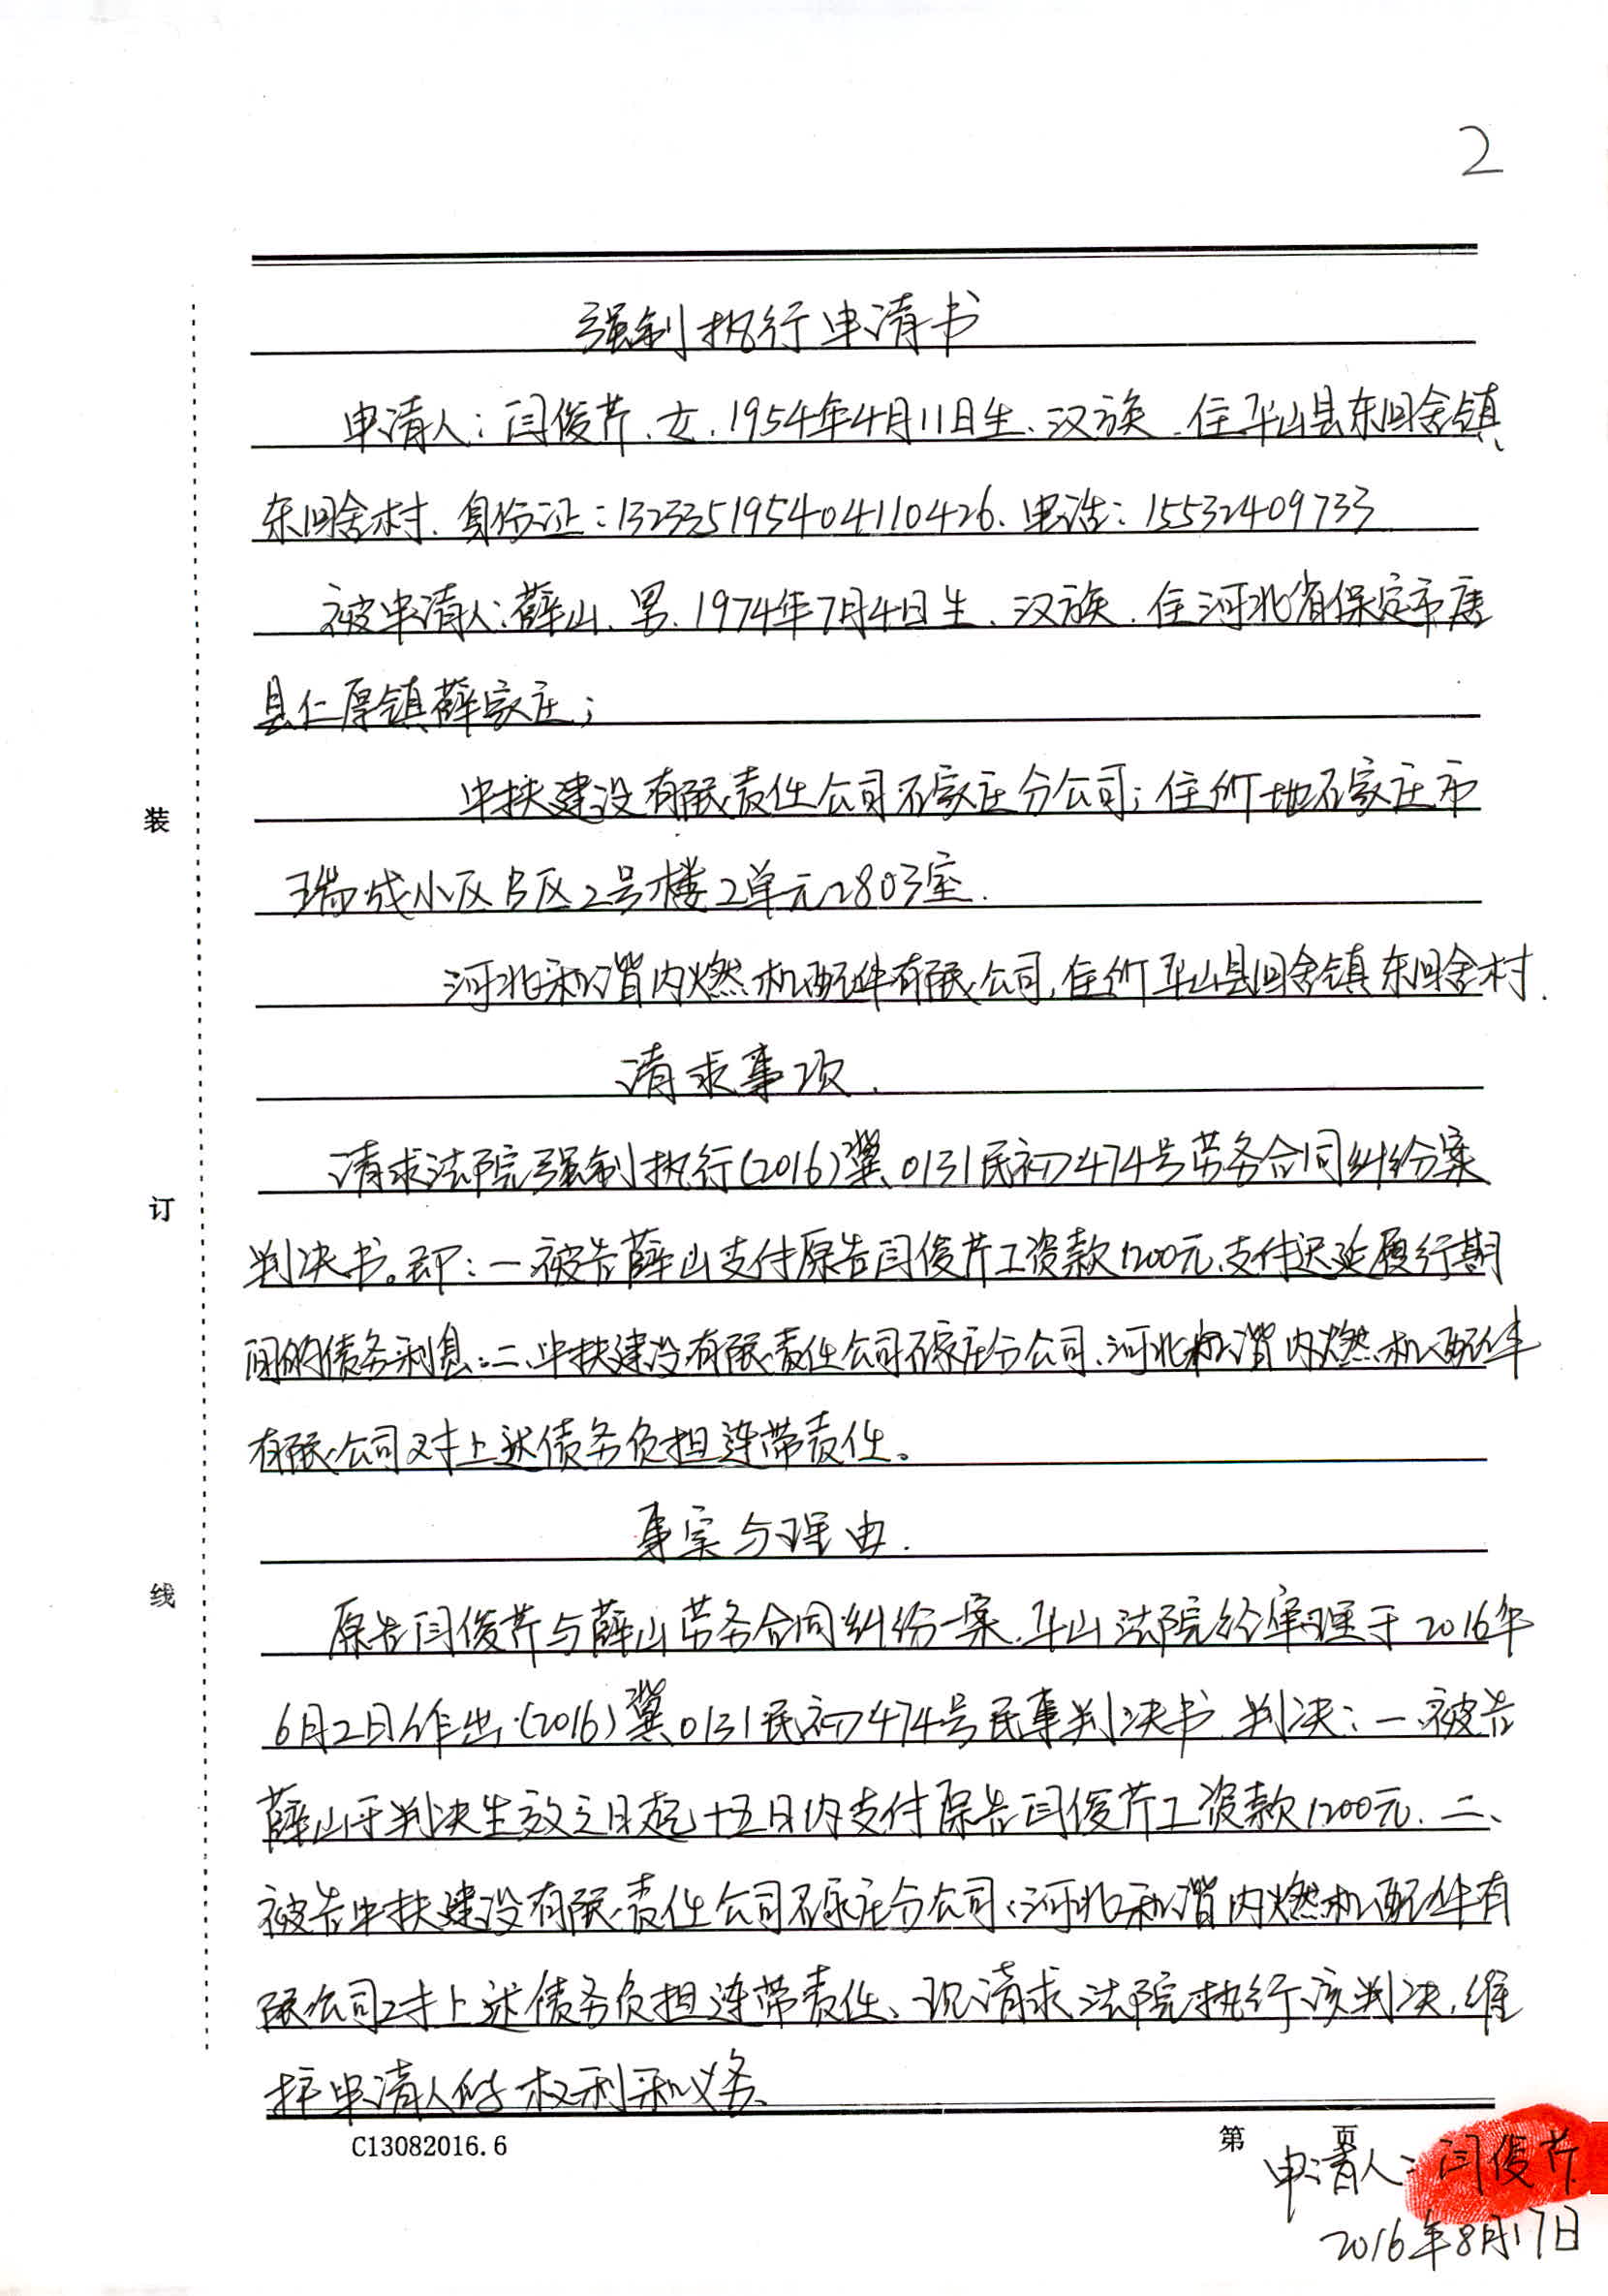 2
强制执行申请书
申请人：闫俊芹、女、1954年4月11日生、汉族、住平山县东回舍镇
东回舍村、身份证：132335195404110426、电话：15532409733
被申请人：薛山、男、1974年7月4日生、汉族、住河北省保定市唐
县仁厚镇薛家庄；
中扶建设有限责任公司石家庄分公司；住所地石家庄市
瑞城小区B区2号楼2单元2803室.
河北和谐内燃机配件有限公司，住所平山县回舍镇东回舍村.
请求事项.
请求法院强制执行(2016)冀0131民初474号劳务合同纠纷案
判决书。即：一被告薛山支付原告闫俊芹工资款1200元、支付迟延履行期
间的债务利息。二、中扶建设有限责任公司石家庄分公司、河北和谐内燃机配件
有限公司对上述债务负担连带责任。
事实与理由.
原告闫俊芹与薛山劳务合同纠纷一案，平山法院经审理于2016年
6月2日作出(2016)冀0131民初474号民事判决书，判决：一、被告
薛山于判决生效之日起十五日内支付原告闫俊芹工资款1200元. 二、
被告中扶建设有限责任公司石家庄分公司、河北和谐内燃机配件有
限公司对上述债务负担连带责任、现请求法院执行该判决，维
护申请人的权利和义务、
装
订
线
C13082016.6
第 页
申请人：闫俊芹
2016年8月17日